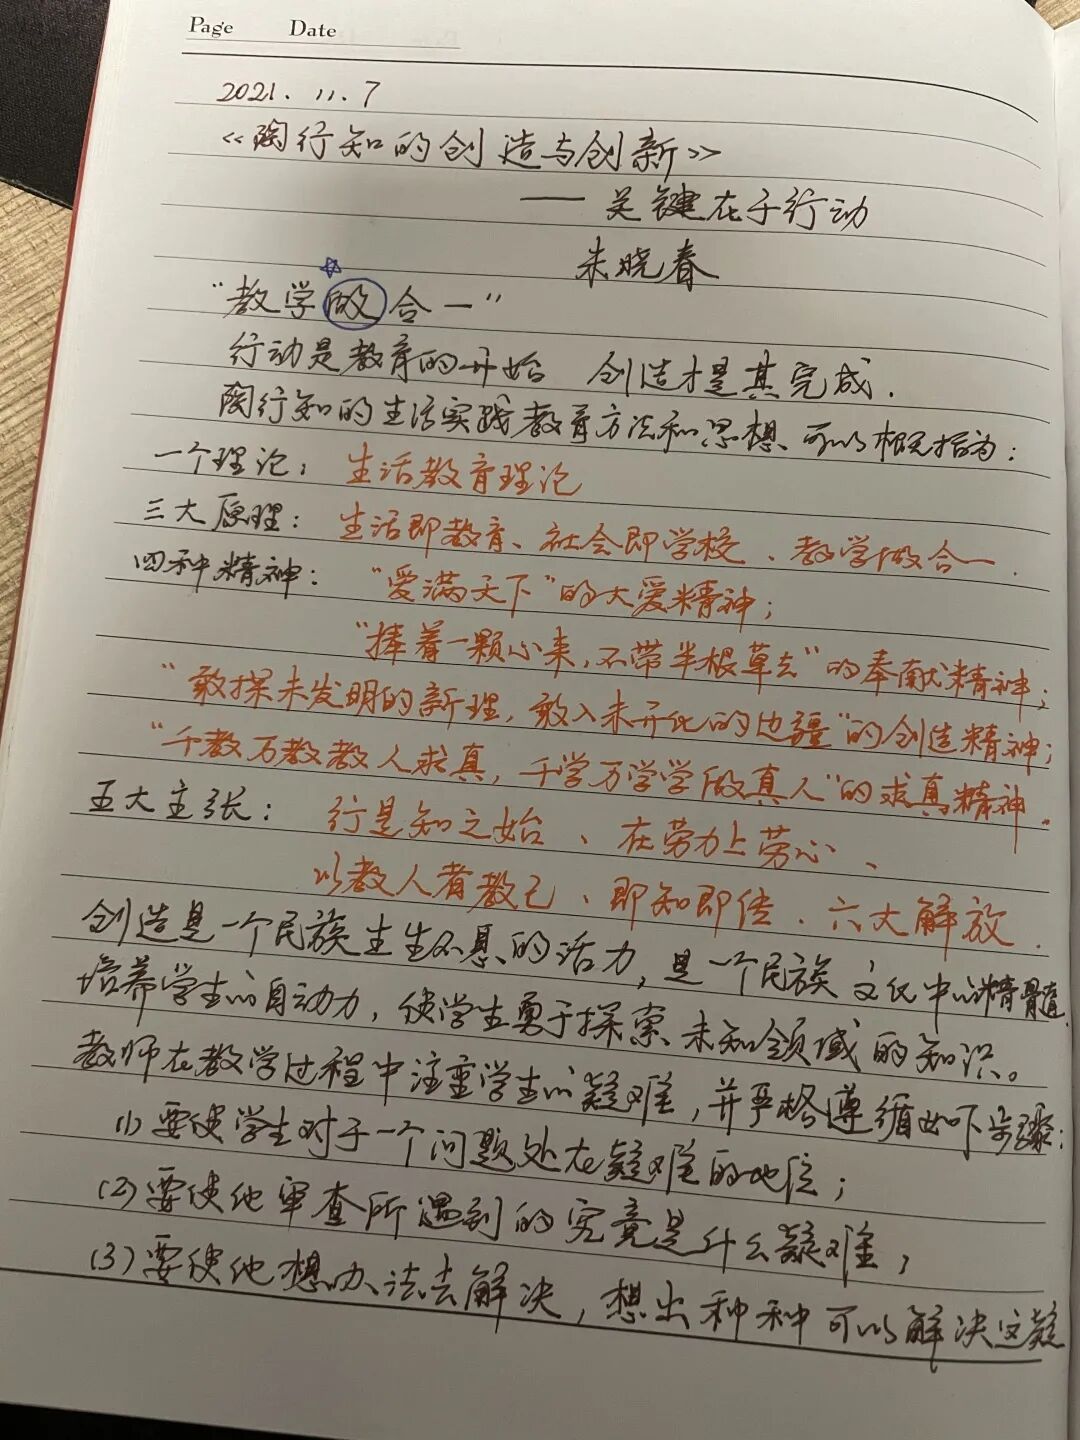 Page Date
2021.11.7
《陶行知的创造与创新》
——关键在于行动
朱晓春
“教学做合一”
行动是教育的开始 创造才是其完成.
陶行知的生活实践教育方法和思想、可以概括为：
一个理论：生活教育理论
三大原理：生活即教育、社会即学校、教学做合一.
四种精神：“爱满天下”的大爱精神；
“捧着一颗心来，不带半根草去”的奉献精神；
“敢探未发明的新理，敢入未开化的边疆”的创造精神；
“千教万教教人求真，千学万学学做真人”的求真精神。
五大主张：行是知之始、在劳力上劳心、
以教人者教己、即知即传、六大解放.
创造是一个民族生生不息的活力，是一个民族文化中的精髓.
培养学生的自动力，使学生勇于探索未知领域的知识。
教师在教学过程中注重学生的疑难，并严格遵循如下步骤：
(1)要使学生对于一个问题处在疑难的地位；
(2)要使他审查所遇到的究竟是什么疑难；
(3)要使他想办法去解决，想出种种可以解决这疑